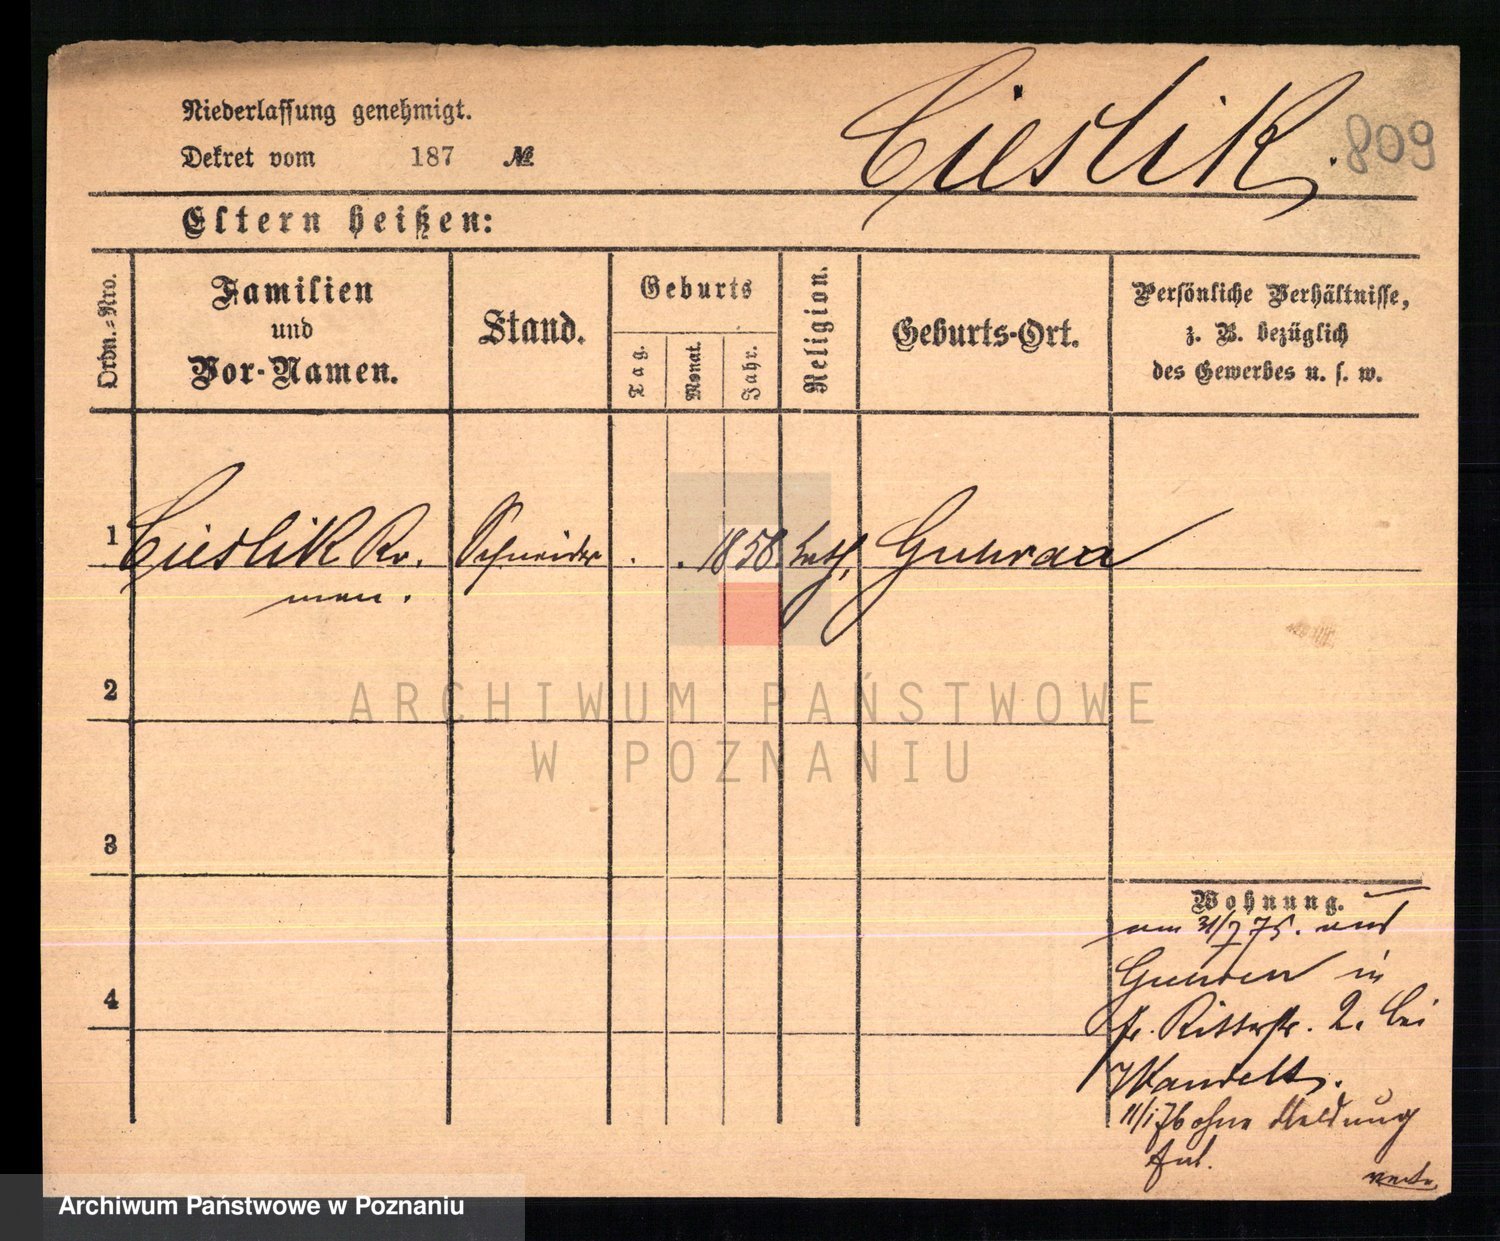 Niederlassung genehmigt.
Dekret vom 187 №
Cieslik.
809
Eltern heißen:
Ordn.-Nro.
Familien
und
Vor-Namen.
Stand.
Geburts
Tag.
Monat.
Jahr.
Religion.
Geburts-Ort.
Persönliche Verhältnisse,
z. B. bezüglich
des Gewerbes u. s. w.
1 Cieslik Ro. Schneider . . 1858. kath.
man.
2
ARCHIWUM PAŃSTWOWE
W POZNANIU
3
Wohnung.
am 31/7 75. aus
in
4
fr. Ritterstr. 2. bei
11/1 76 ohne Meldung
Archiwum Państwowe w Poznaniu